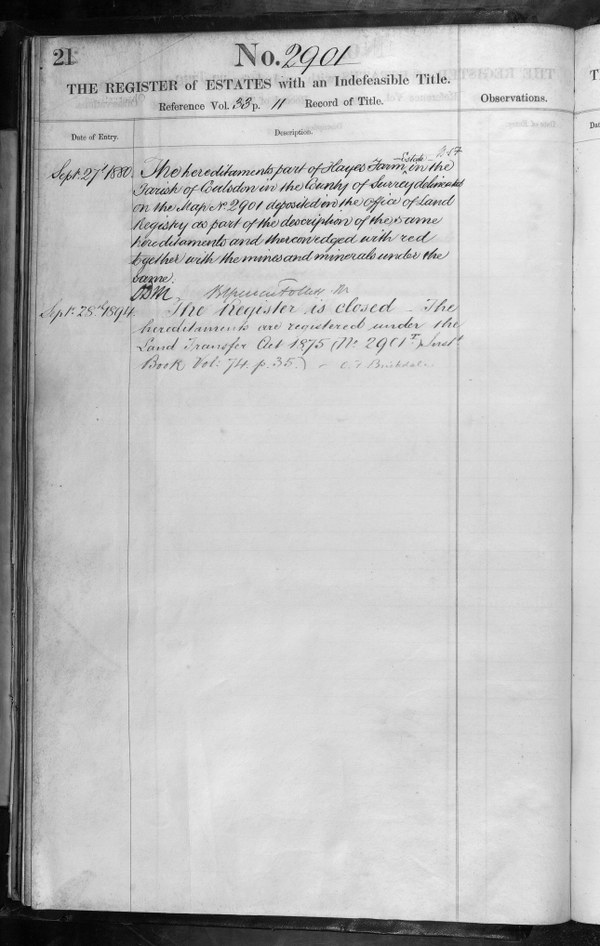 21
No. 2901
THE REGISTER of ESTATES with an Indefeasible Title.
Reference Vol. 33 p. 11 Record of Title.
Observations.
Date of Entry.
Description.
Sept. 27th 1880.
The hereditaments part of Hayes Farm Estate in the
Parish of Coulsdon in the County of Surrey delineated
on the Map No. 2901 deposited in the Office of Land
Registry as part of the description of the same
hereditaments and thereon edged with red
together with the mines and minerals under the
same.
Sept. 28th 1894.
The Register is closed - The
hereditaments are registered under the
Land Transfer Act 1875 (No 2901 T) Inst.
Book Vol: 74. p. 35.)